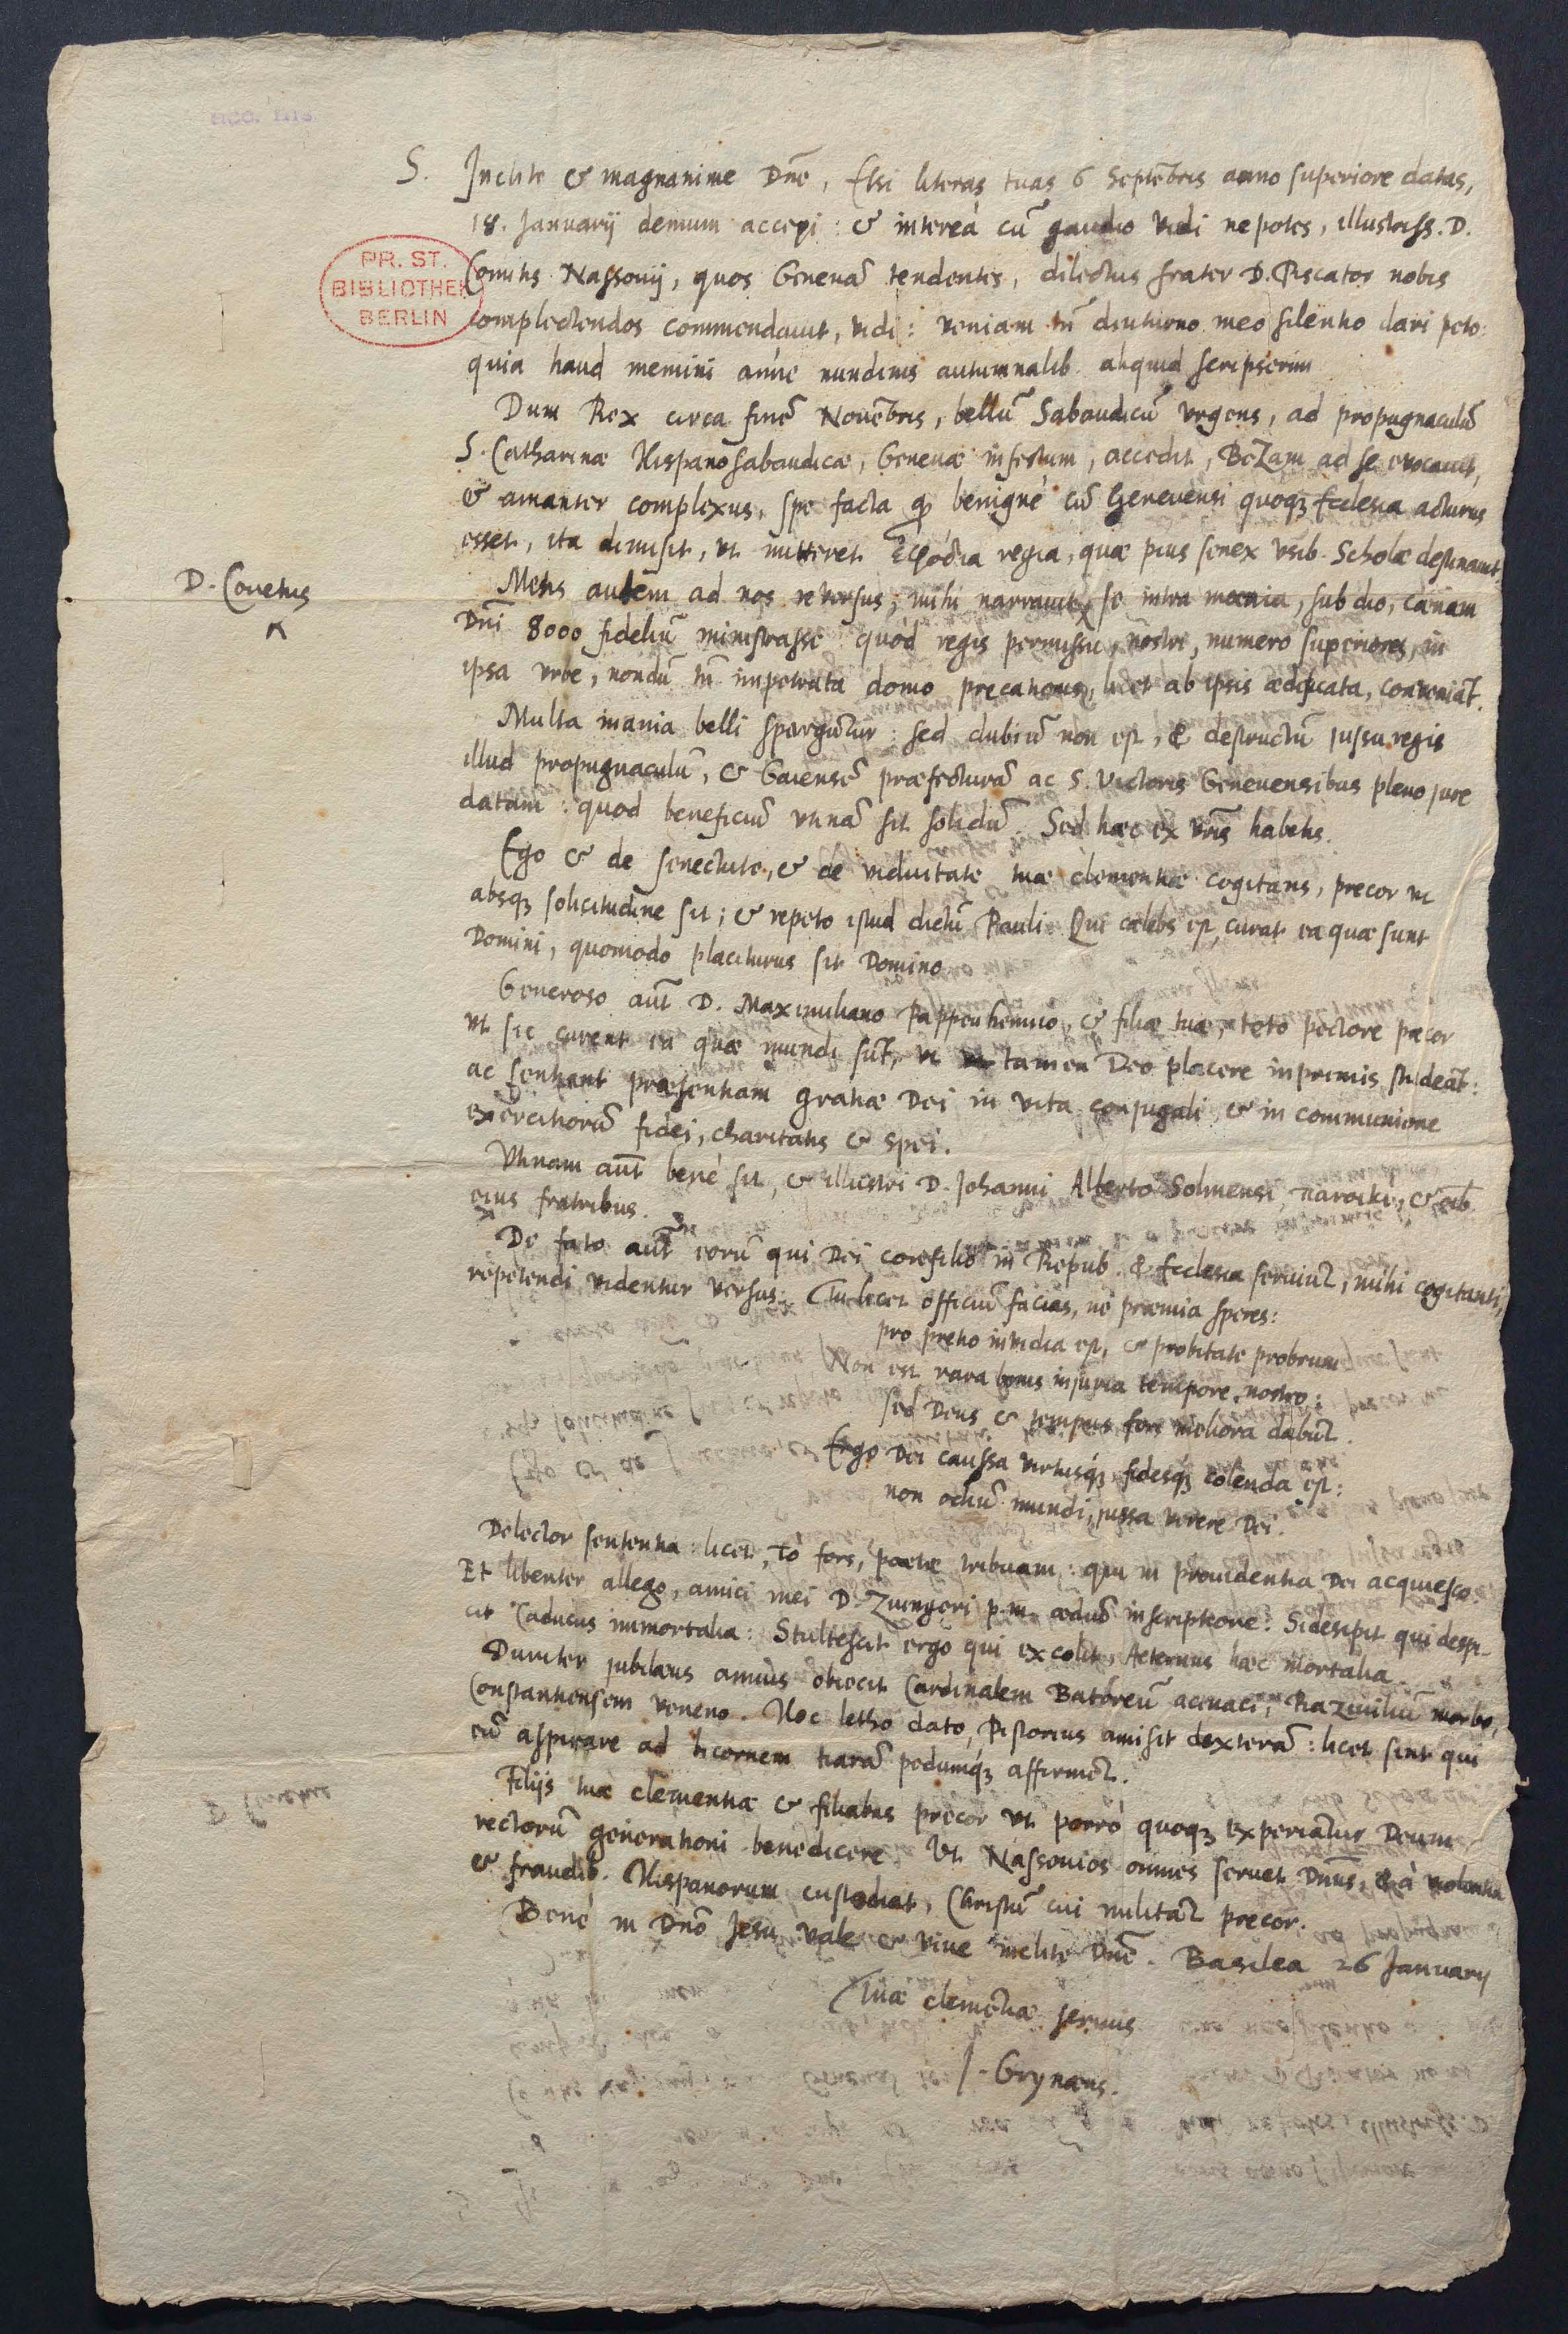 S. Inclite & magnanime Dnē, Etsi literas tuas 6 Septēbris anno superiore datas,
18. Januarij demum accepi: & intereà cū gaudio vidi nepotes, illustriss. D.
Comitis Nassovij, quos Genevā tendentes, dilectus frater D. Piscator nobis
complectendos commendavit, vidi: veniam tn̄ diuturno meo silentio dari peto:
quia haud memini anne nundinis autumnalib. aliquid scripserim
Dum Rex circa finē Novēbris, bellū Sabaudicū vrgens, ad propugnaculū
S. Catharinæ Hispanosabaudicæ, Genevæ infestum, accedit, BeZam ad se evocavit,
& amanter complexus, spe facta qd benignè cū Genevensi quoq; Ecclesia acturus
esset, ita dimisit, vt mitteret ἐφόδια regia, quæ pius senex vsib. Scholæ destinavit.
D. Covetus
Metis autem ad nos reversus, mihi narravit, se intra mœnia, sub dio, cœnam
Dnī 8000 fideliū ministrasse quòd regis permissu, nostri, numero superiores, in
ipsa vrbe, nondū tn̄ impetrata domo precationis, licet ab ipsis ædificata, conveniāt.
Multa inania belli spargūtur: sed dubiū non est, & destructū jussu regis
illud propugnaculū, & Gaiensē præfecturā ac S. Victoris Genevensibus pleno jure
datam: quod beneficiū vtinā sit solidū. Sed hæc ex vr̄is habetis.
Ego & de senectute, & de viduitate tuæ clementiæ cogitans, precor vt
absq; solicitudine sit; & repeto istud dictū Pauli: Qui cælebs est, curat ea quæ sunt
Domini, quomodo placiturus sit Domino
Generoso aūt D. Maximiliano Pappenhemio, & filiæ tuæ, toto pectore precor
vt sic curent ea quæ mundi sūt, vt tamen Deo placere inprimis studeāt:
ac sentiant præsentiam gratiæ Dei in vita conjugali & in communione
exercitiorū fidei, charitatis & spei.
Vtinam aūt benè sit, & illustri D. Johanni Alberto Solmensi, & oīb.
eius fratribus.
De fato aūt eorū qui Dei consilio in Repub. & Ecclesia serviūt, mihi cogitanti,
repetendi videntur versus: Tu licet officiū facias, ne præmia speres:
pro pretio invidia est, & probitate probrum
Non est rara bonis injuria tempore nostro:
sed Deus & tempus fors meliora dabūt.
Ergo Dei caussa virtusq́; fidesq́; colenda est:
non odiū mundi, jussa verere Dei.
Delector sententia: licet, τὸ fors, poetæ tribuam: qui in providentia Dei acquiesco.
Et libenter allego, amici mei D. Zvingeri p.m. ædiū inscriptione: Si desipit qui despi-
cit Caducus immortalia: Stultescit ergo qui excolit, Aeternus hæc mortalia.
Duriter jubilæus annus obiecit Cardinalem Batoreū acinaci, Raziviliū morbo,
Constantiensem veneno. Hoc letho dato, Pistorius amisit dexterā: licet sint qui
eū aspirare ad bicornem tiarā pedumq́; affirmēt.
Filijs tuæ clementiæ & filiabus precor vt porrò quoq; experiātur Deum
rectorū generationi benedicere. Vt Nassovios omnes servet Dnūs, & à violentia
& fraudib. Hispanorum custodiat, Christū cui militāt precor.
Benè in Dnō Jesu vale & vive inclite Dnē. Basilea 26 Januarij
Tuæ clemētiæ servus
J. Grynæus.
PR. ST.
BIBLIOTHEK
BERLIN